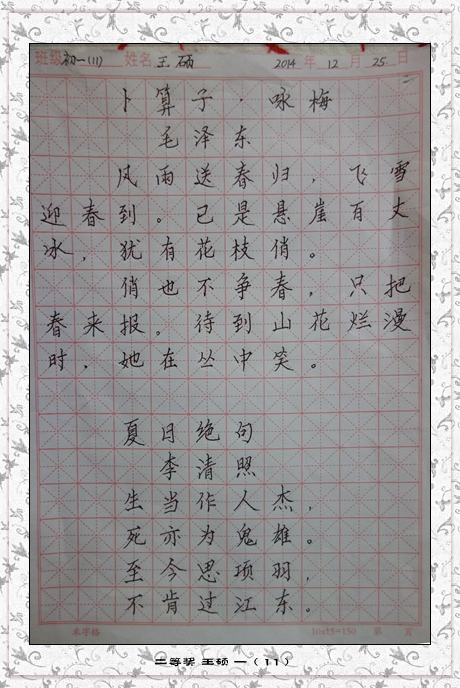 班级初一(11) 姓名王硕 2014年12月25日
卜算子·咏梅
毛泽东
风雨送春归,飞雪
迎春到。已是悬崖百丈
冰,犹有花枝俏。
俏也不争春,只把
春来报。待到山花烂漫
时,她在丛中笑。
夏日绝句
李清照
生当作人杰,
死亦为鬼雄。
至今思项羽,
不肯过江东。
米字格 10x15=150 第 页
二等奖 王硕 一(11)